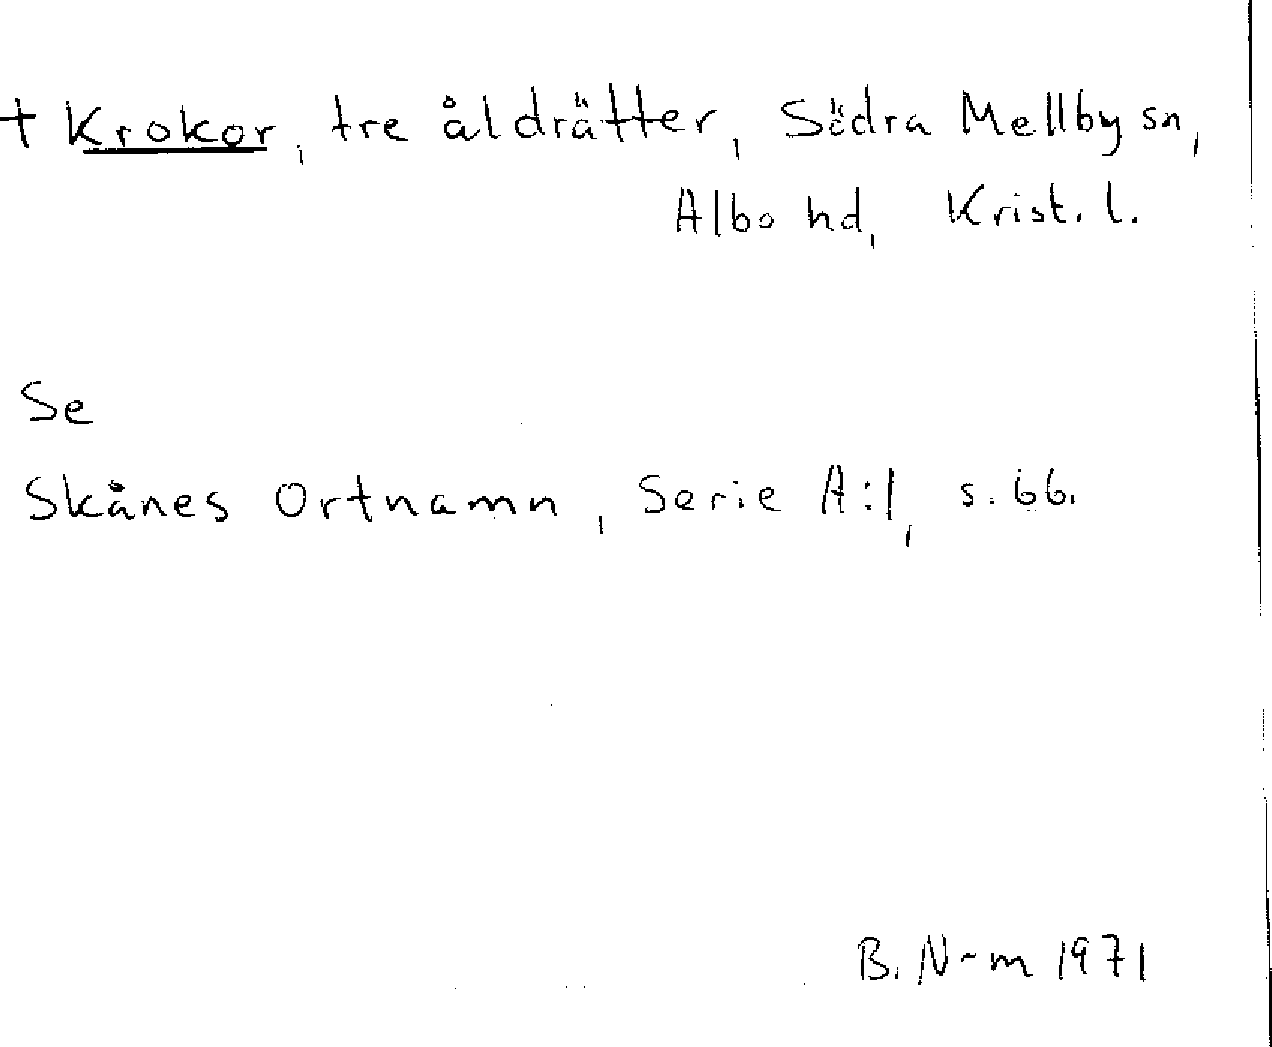 † Krokor, tre åldrätter, Södra Mellby sn,
Albo hd, Krist. l.
Se
Skånes Ortnamn, Serie A:1, s. 66.
B. N-m 1971